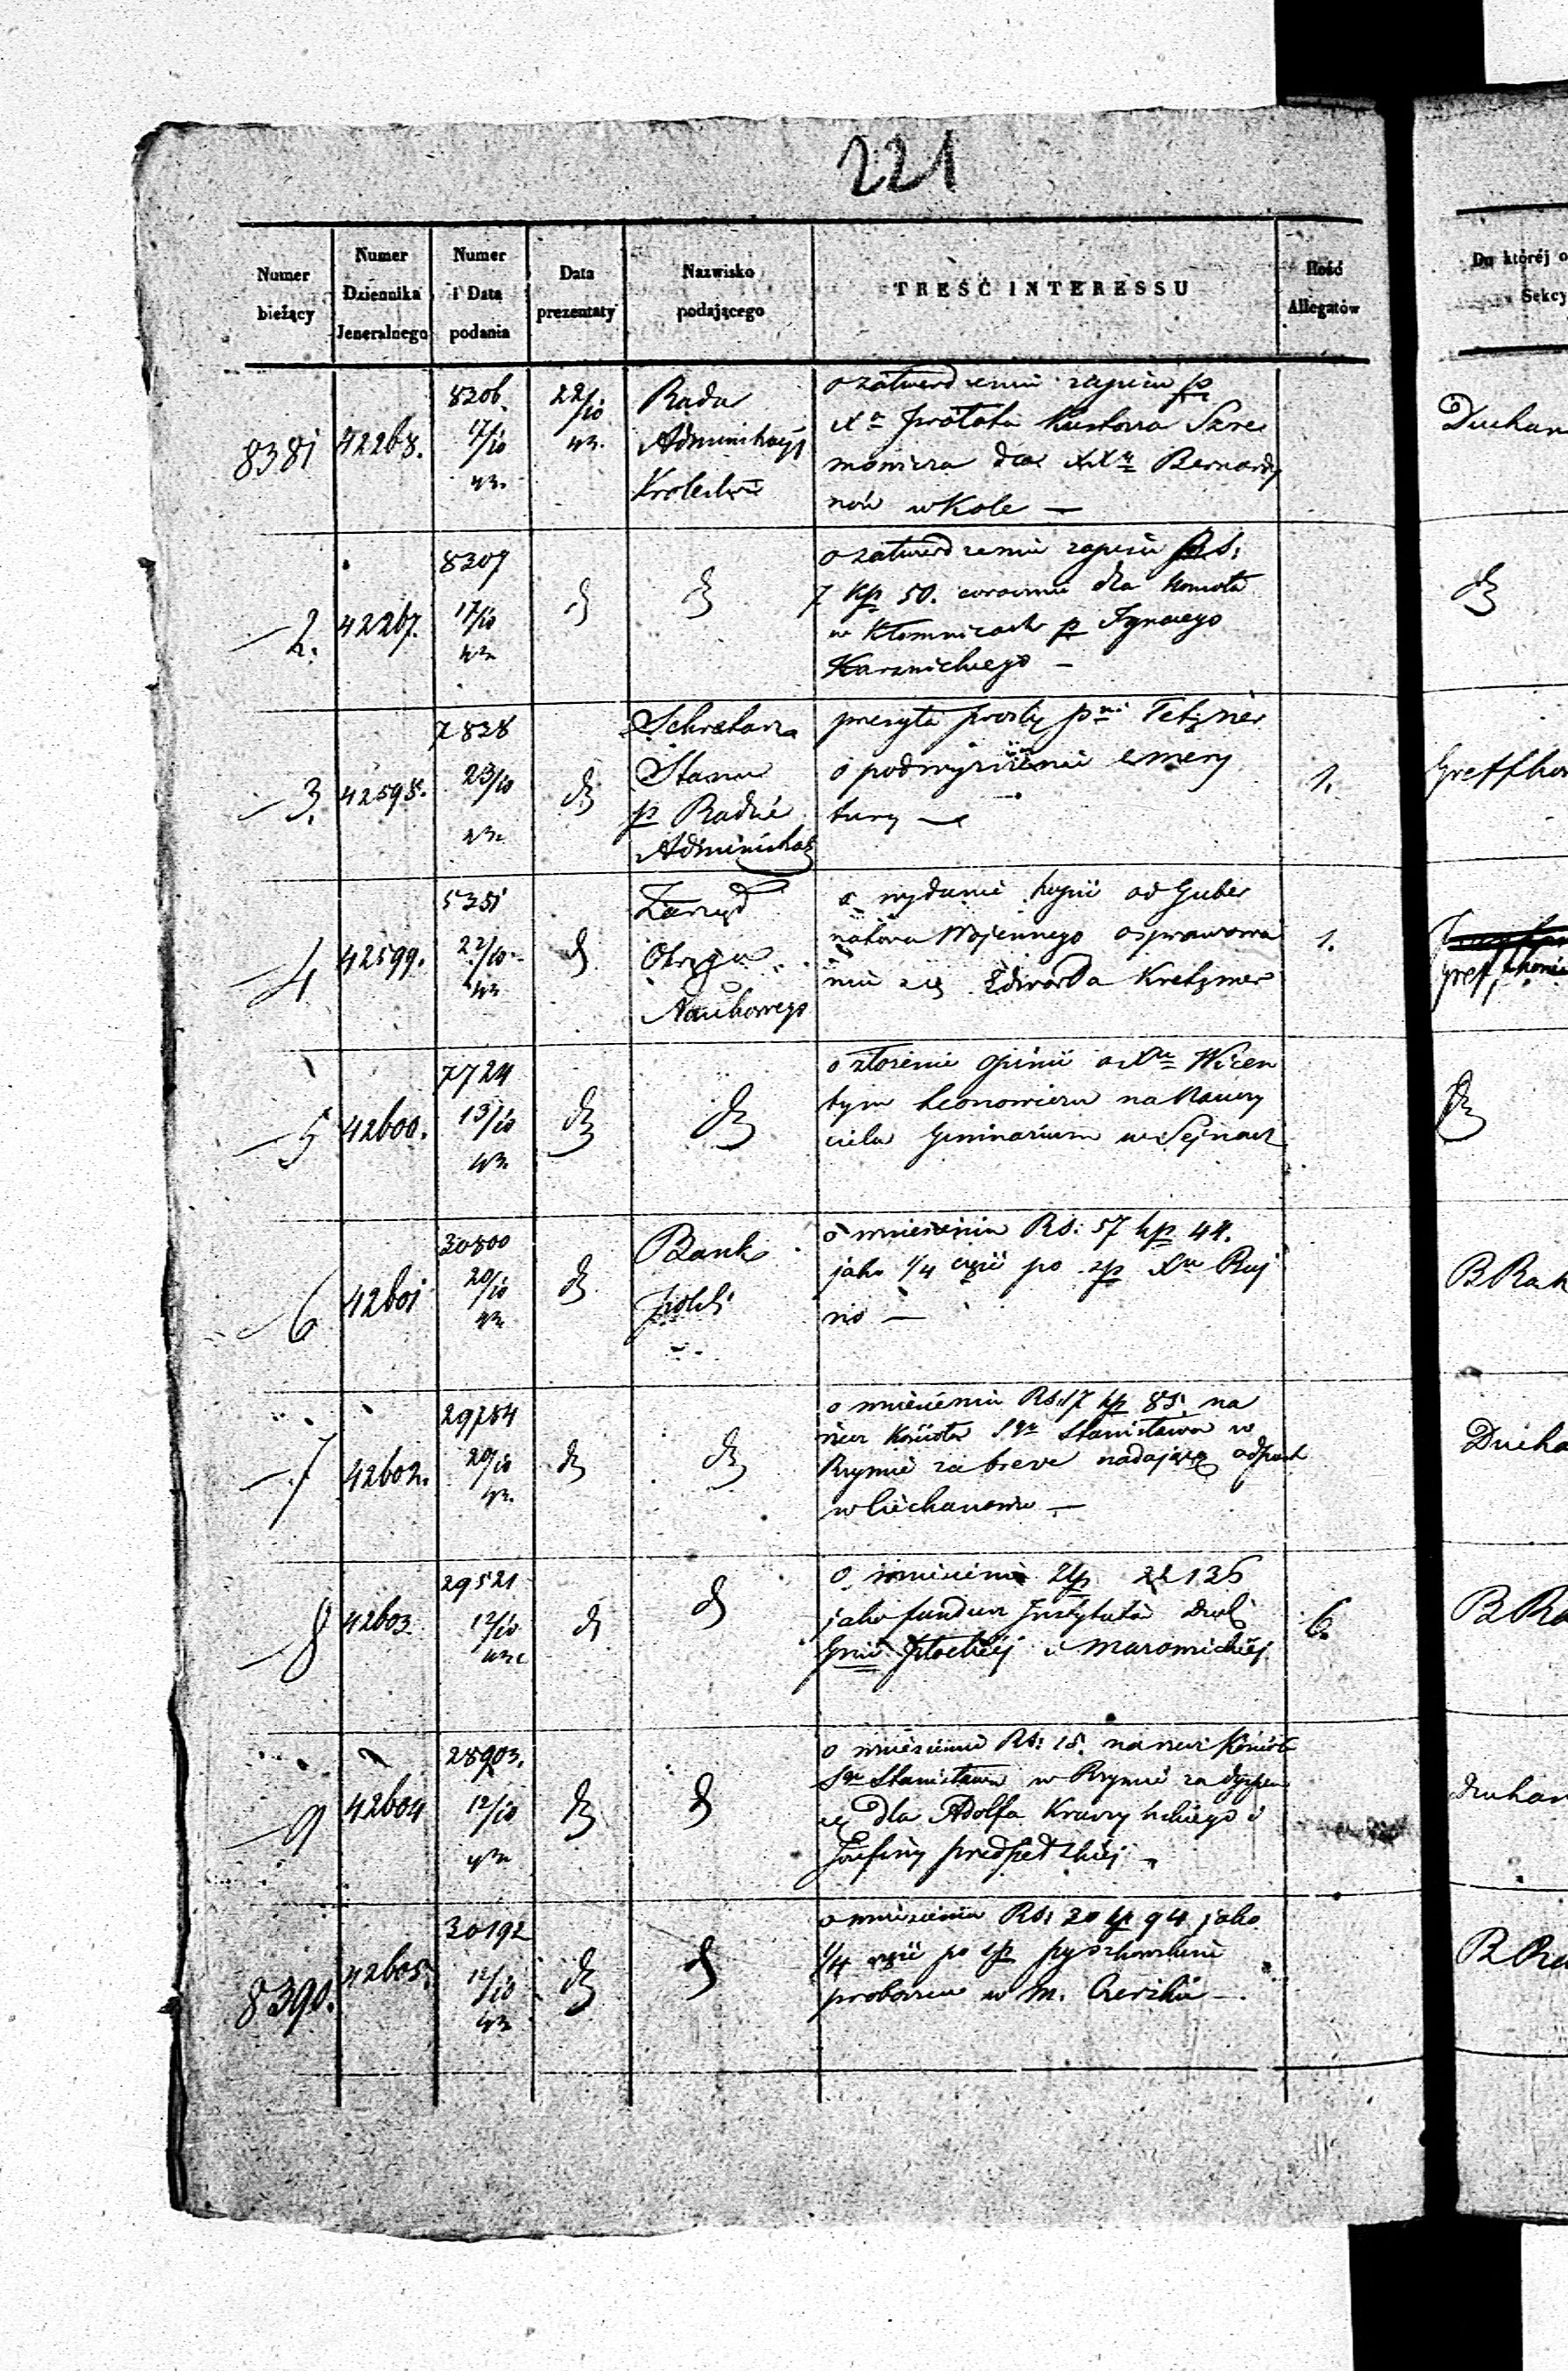 221
Numer bieżący
Numer Dziennika Jeneralnego
Numer i Data podania
Data prezentaty
Nazwisko podającego
TREŚĆ INTERESSU
Ilość Allegatów
Do któréj o
Sekcy
8381 42268. 8206. 17/10 43. 22/10 43.
Rada
Administracyj
Królestwa
o zatwierdzenie zapisu p
Xa Prałata Kustosza Szre
mowicza dla XXw Bernardy
nów w Kole —
Duchow
2. 42267. 8207 17/10 43
o zatwierdzenie zapisu Rs:
7 kp 50. corocznie dla Kościoła
w Kłomnicach p Ignacego
Karznickiego —
3. 42598. 7828 23/10 43
Sekretarz
Stanu
p Radzie
Administrac
przesyła prośbę pni Tetzner
o podwyższenie emery
tury —
1.
4 42599. 5351 22/10 43
Zarząd
Okręgu
Naukowego
o wydanie kopii od Guber
natora Wojennego o sprawowa
niu się Edwarda Kretzmer
1.
5 42600. 7724 13/10 43.
o złożenie opinii o Xu Wicen
tym Leonowiczu na Nauczy
ciela Seminarium w Sejnach
6 42601 30800 20/10 43
Bank
Polski
o wniesieniu Rs: 57 kp 44.
jako 1/4 części po zp Xu Ruj
no —
B Rak
7 42602. 29784 20/10 43.
o wniesieniu Rs: 17 kp 85. na
rzecz Kościoła Sgo Stanisława w
Rzymie za breve nadające odpust
w Ciechanowie —
Ducho
8 42603 29521 12/10 43
o wniesieniu Złp 136
jako fundusz Instytutów
Gnii Płockiej i Mazowieckiej
6.
B Ra
9 42604 28903. 12/10 43
o wniesieniu Rs: 15. na rzecz Kościoła
Sgo Stanisława w Rzymie za dyspen
sę dla Adolfa i
Józefiny
Duchow
8390. 42605. 30192 12/10 43
o wniesieniu Rs: 20 kp 94 jako
1/4 części po zp Pyszkowskim
proboszczu w m.
B Ra